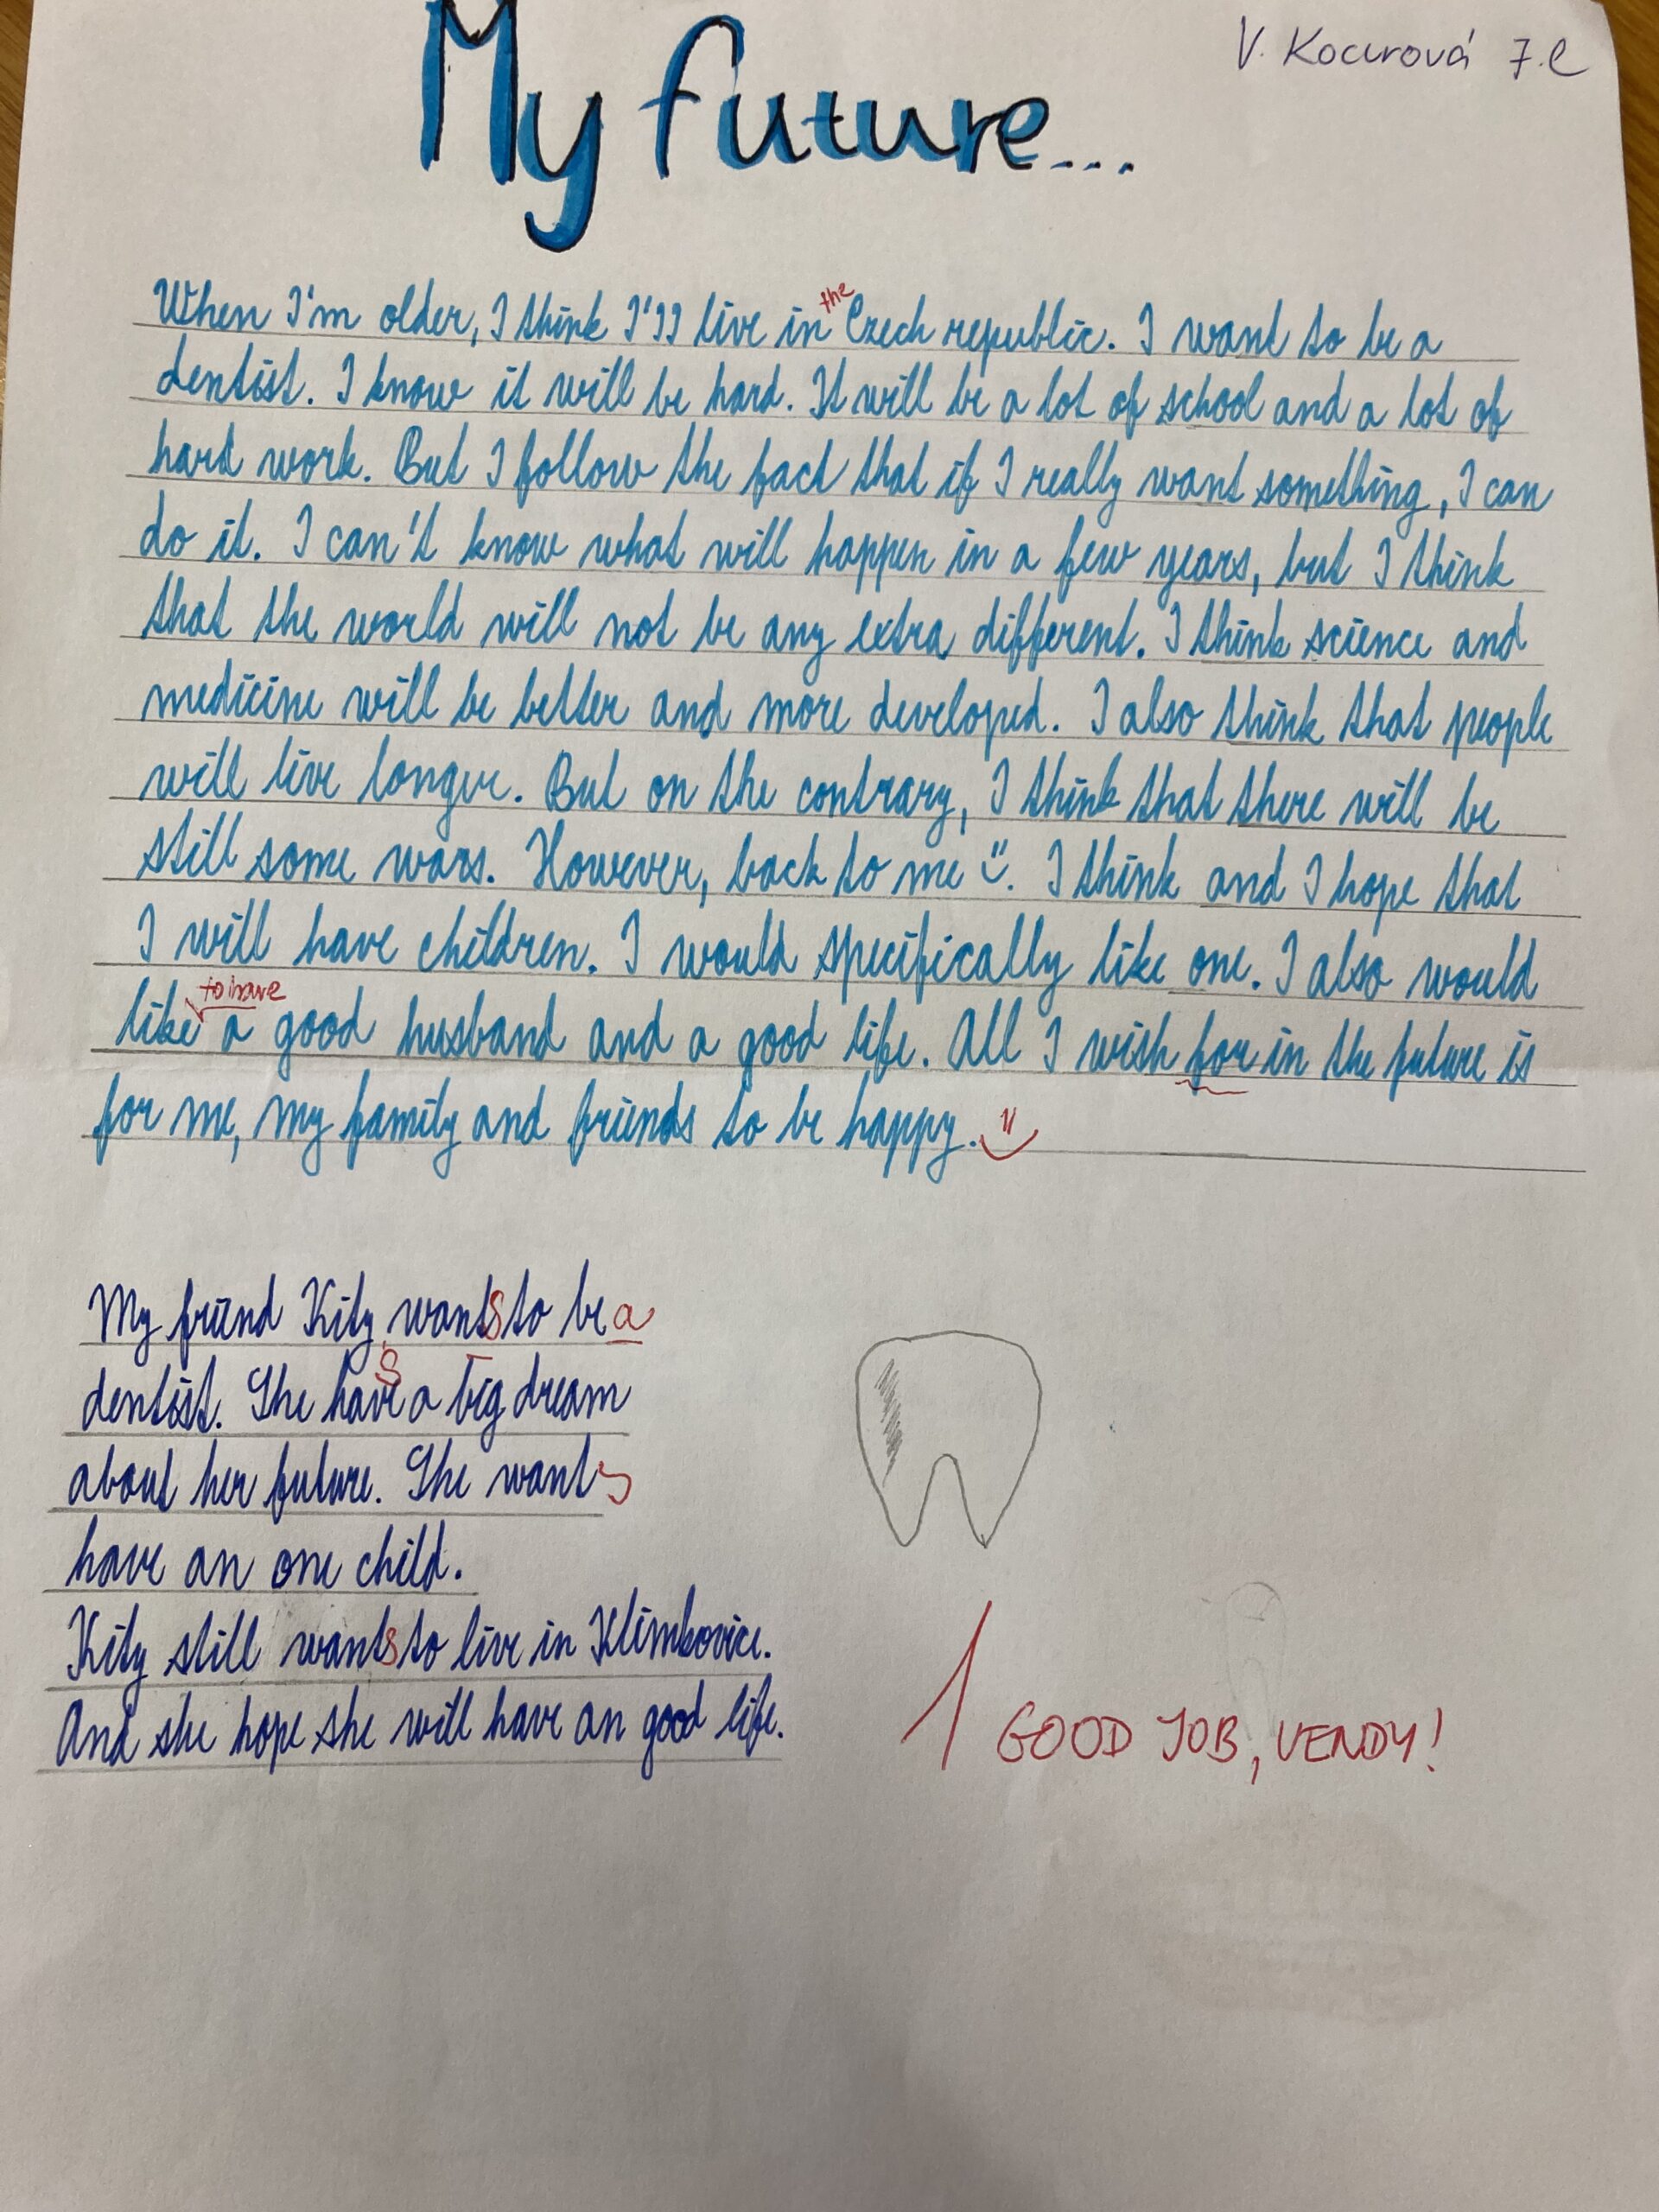 V. Kocurová 7.C
My future...
When I'm older, I think I'll live in the Czech republic. I want to be a
dentist. I know it will be hard. It will be a lot of school and a lot of
hard work. But I follow the fact that if I really want something, I can
do it. I can't know what will happen in a few years, but I think
that the world will not be any extra different. I think science and
medicine will be better and more developed. I also think that people
will live longer. But on the contrary, I think that there will be
still some wars. However, back to me ☺. I think and I hope that
I will have children. I would specifically like one. I also would
like to have a good husband and a good life. All I wish for in the future is
for me, my family and friends to be happy. ☺
My friend Kity wants to be a
dentist. She have s a big dream
about her future. She wants
have an one child.
Kity still wants to live in Klimkovice.
And she hope she will have an good life.
1 GOOD JOB, VENDY!